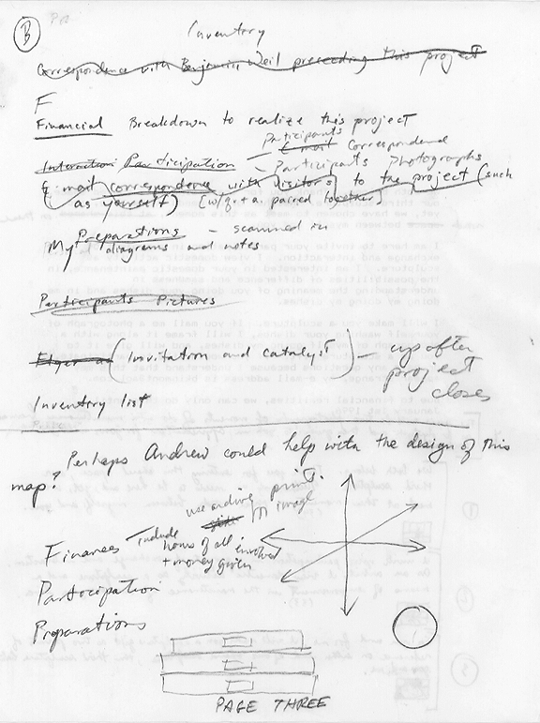 B
Inventory
Correspondence with Benjamin Weil preceeding this project
F
Financial Breakdown to realize this project
Participants
Interaction Participation - E-mail Correspondence
- Participants Photographs
E-mail correspondence with visitors to the project (such
as yourself) [w/q. + a. paired together]
Preparations - scanned in
My diagrams and notes
Participants Pictures
Flyer (Invitation and catalyst) - up after
project
closes
Inventory list
Perhaps Andrew could help with the design of this
map?
use ending print.
image
Finances Include hours of all involved
+ money given
Participation
Preparations
1
PAGE THREE